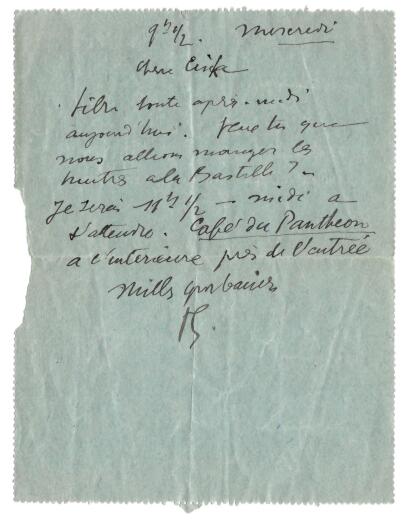 9h 1/2. Mercredi
Chere
libre toute après-midi
aujourd'hui. Veux tu que
nous allions manger les
huitres a la Bastille ? -
Je serai 11h 1/2 - midi a
t'attendre. Café du Pantheon
a l'interieure près de l'entrée
Mille gros baisers